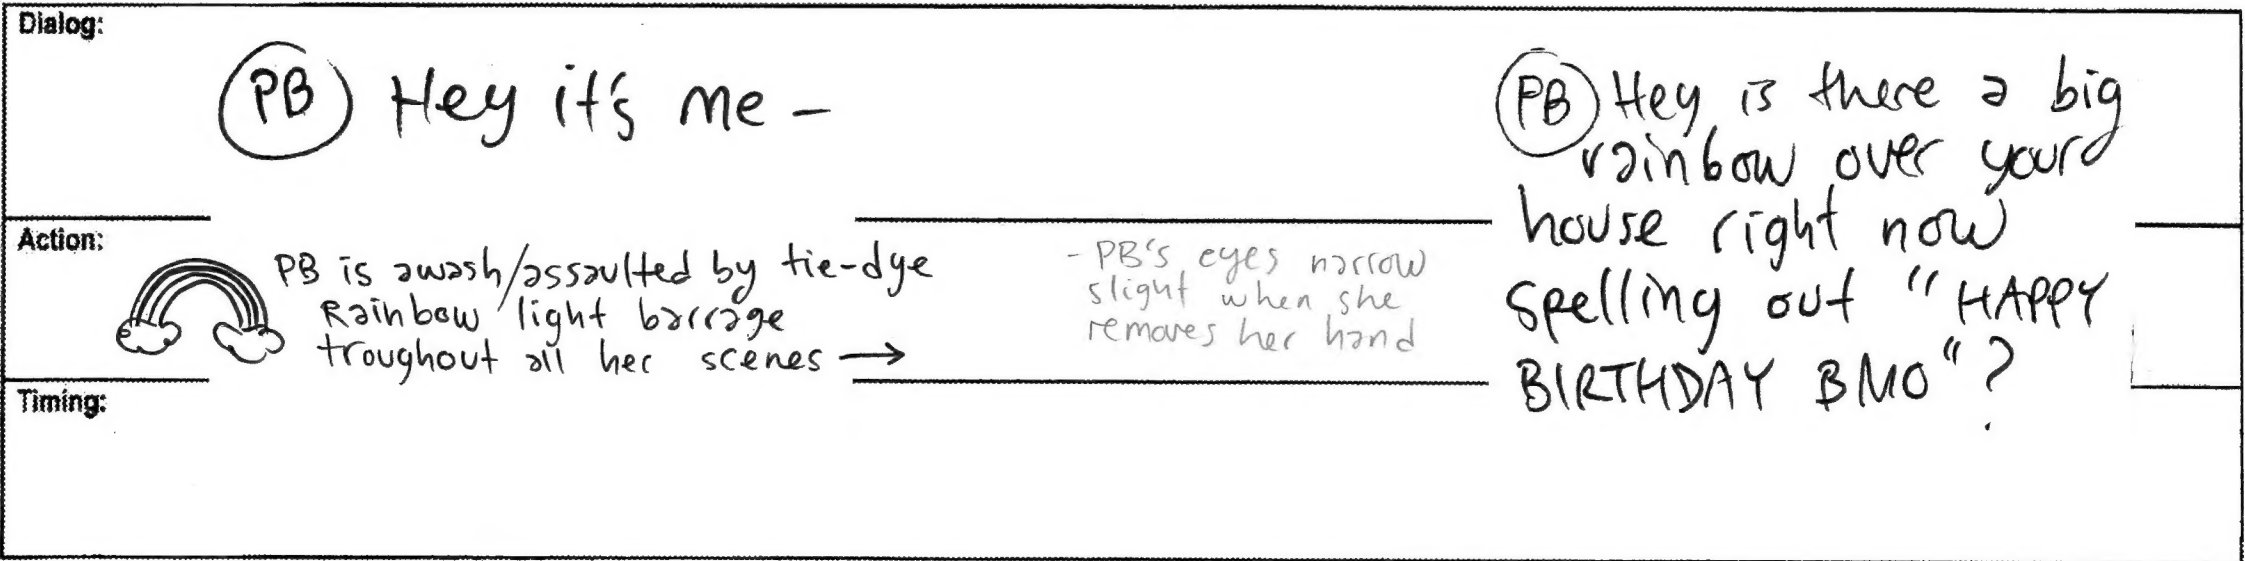 Dialog:
PB Hey it's me -
PB Hey is there a big
rainbow over your
house right now
spelling out "HAPPY
BIRTHDAY BMO"?
Action:
PB is awash/assaulted by tie-dye
Rainbow light barrage
troughout all her scenes →
- PB's eyes narrow
slight when she
removes her hand
Timing: